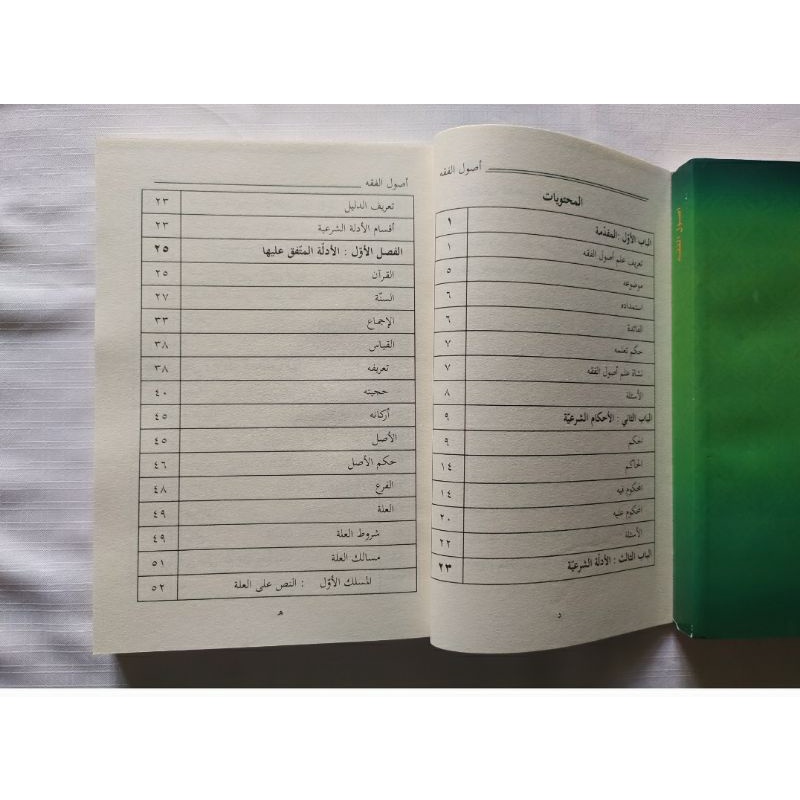 أصول الفقه
المحتويات
الباب الأوّل :المقدّمة ١
تعريف علم أصول الفقه ١
موضوعه ٥
استمداده ٦
الفائدة ٦
حكم تعلمه ٧
نشأة علم أصول الفقه ٧
الأسئلة ٨
الباب الثاني : الأحكام الشرعيّة ٩
الحكم ٩
الحاكم ١٤
المحكوم فيه ١٤
المحكوم عليه ٢٠
الأسئلة ٢٢
الباب الثالث : الأدلّة الشرعيّة ٢٣
د
أصول الفقه
تعريف الدليل ٢٣
أقسام الأدلة الشرعية ٢٣
الفصل الأوّل : الأدلّة المتّفق عليها ٢٥
القرآن ٢٥
السنّة ٢٧
الإجماع ٣٣
القياس ٣٨
تعريفه ٣٨
حجيته ٤٠
أركانه ٤٥
الأصل ٤٥
حكم الأصل ٤٦
الفرع ٤٨
العلة ٤٩
شروط العلة ٤٩
مسالك العلة ٥١
المسلك الأوّل : النص على العلة ٥٢
ه
أصول الفقه